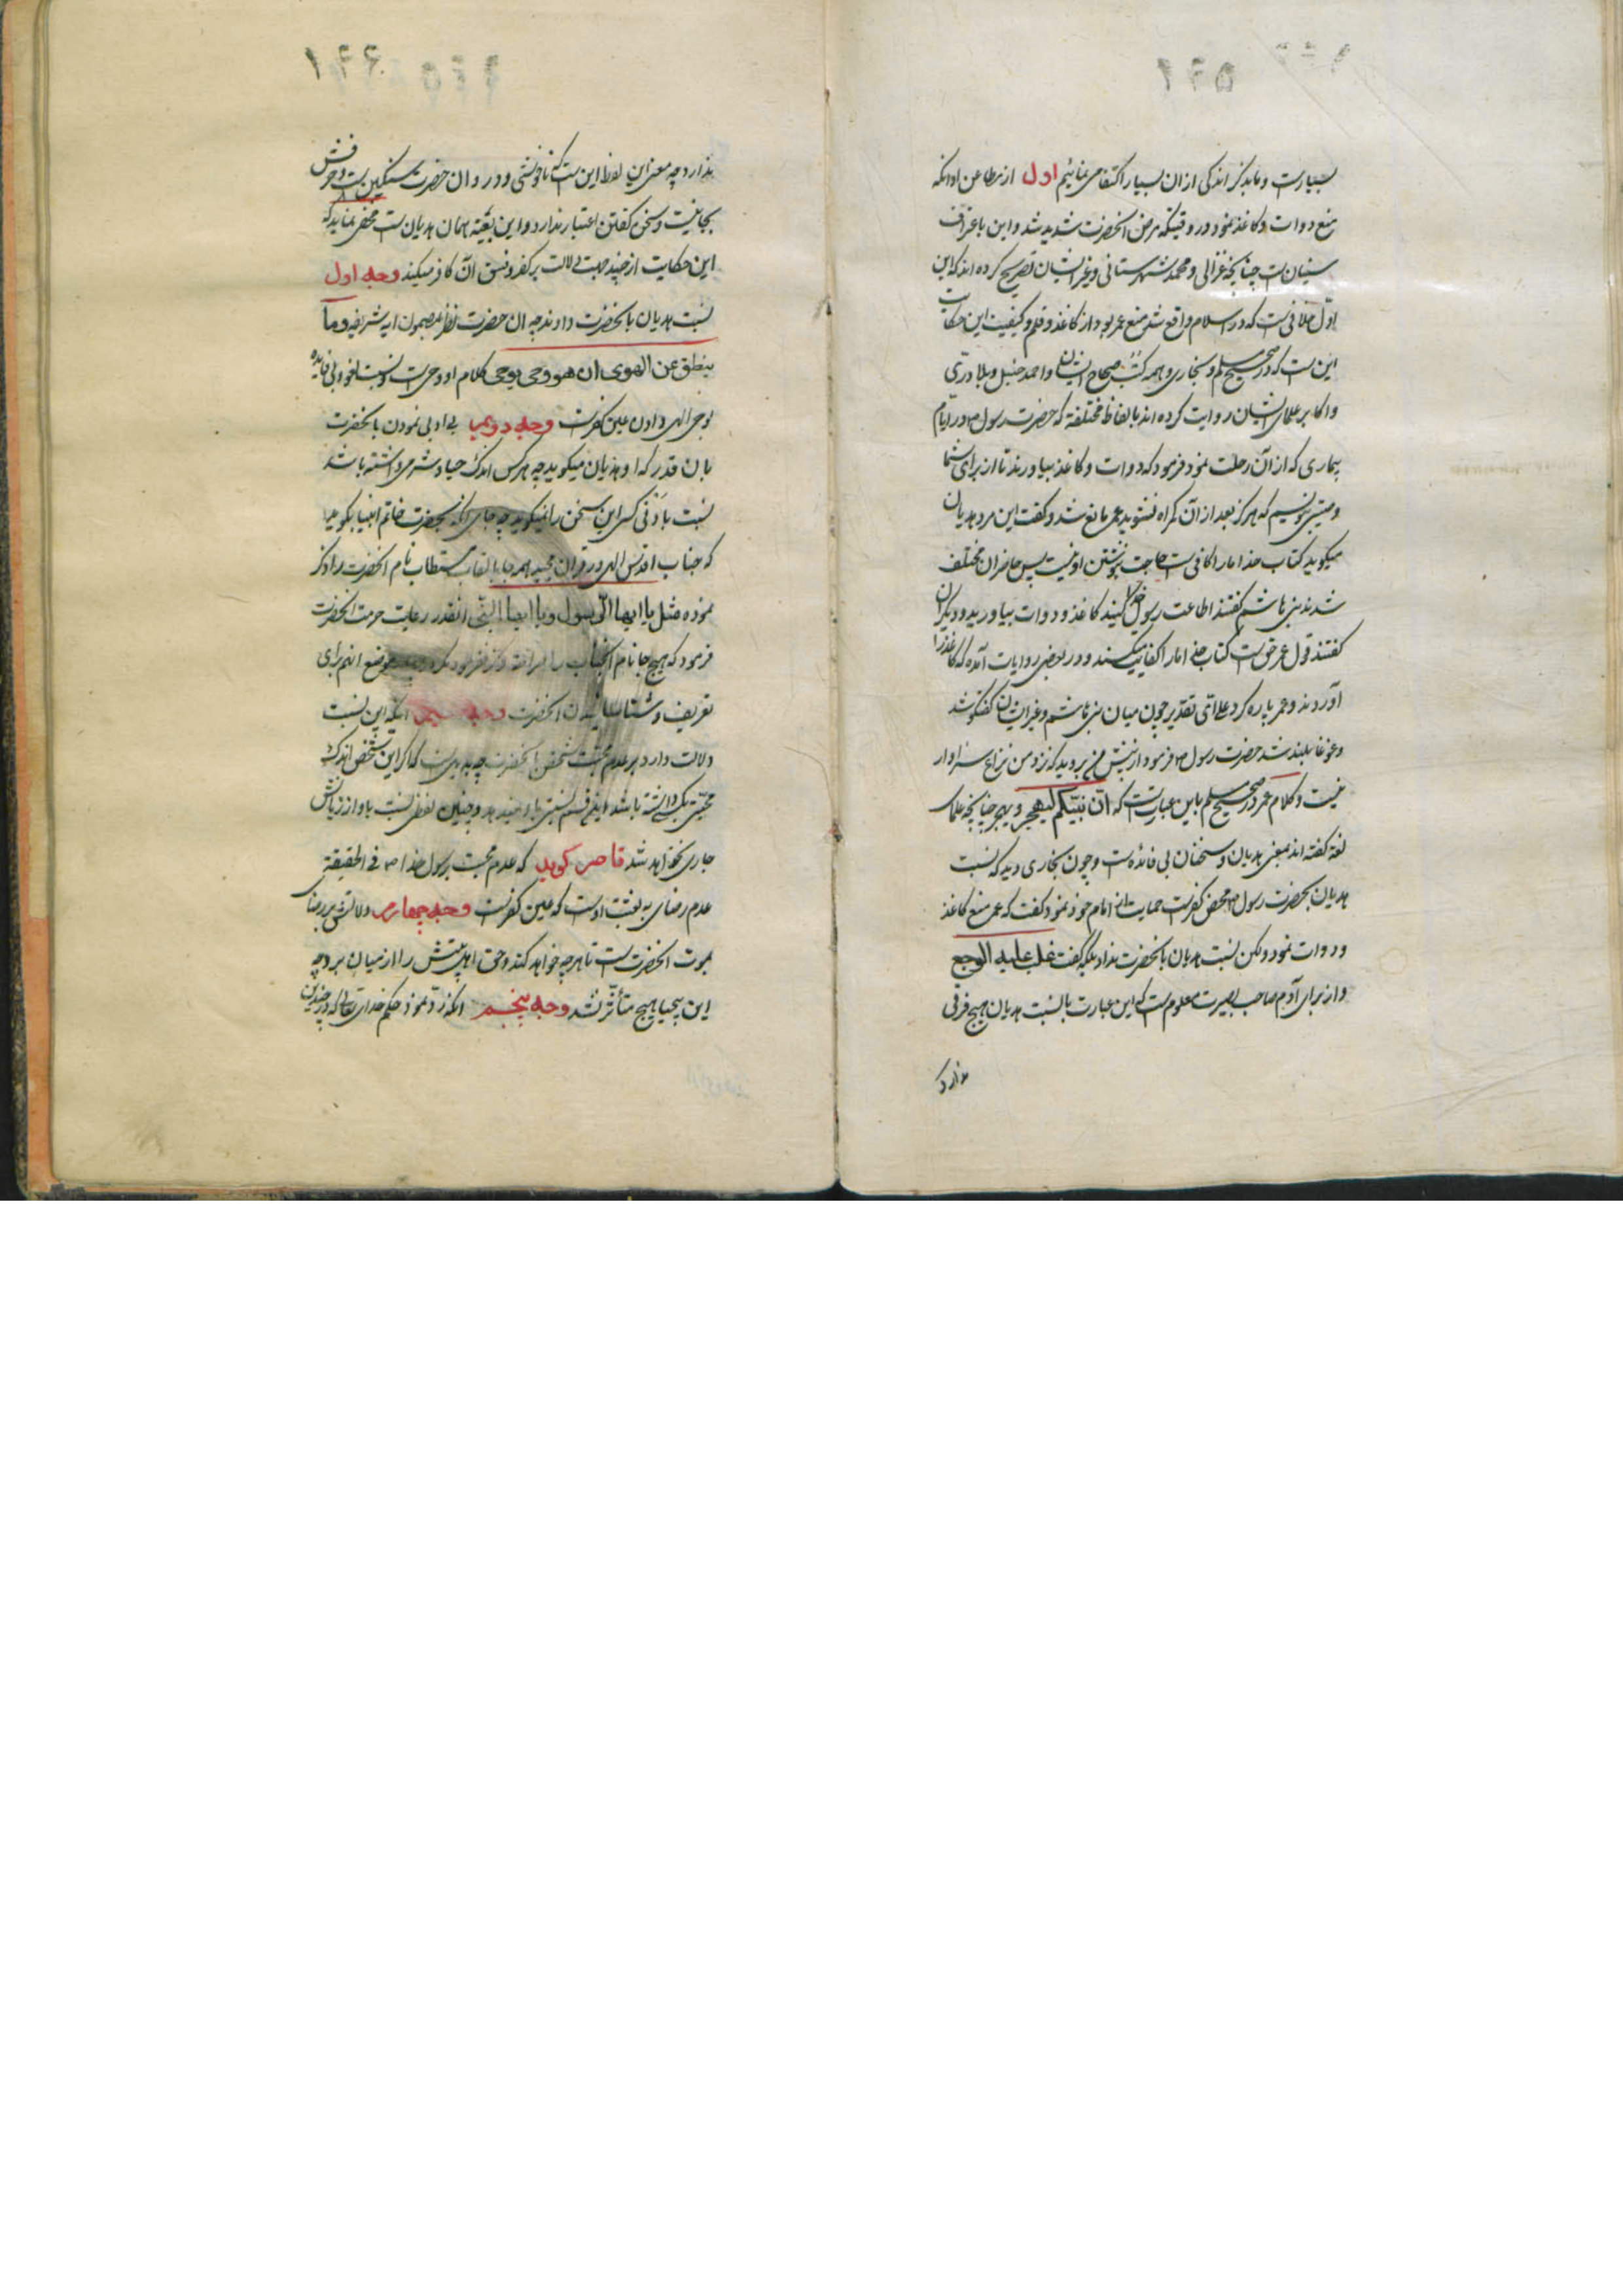 بسیارست و ما بذکر اندکی از ان بسیار اکتفا می نمائیم اول از مطاعن او انکه
منع دوات و کاغذ نمود در وقتیکه مرض انحضرت شدید شد و این باعتراف
سنیان ست چنانچه غزالی و محمد شهرستانی و غیر ایشان تصریح کرده اند که این
اول خلافی ست که در اسلام واقع شد منع عمر بود از کاغذ و قلم و کیفیت این حکایت
این ست که در صحیح مسلم و بخاری و همه کتب صحاح ایشان و احمد حنبل و بلادری
و اکابر علمای ایشان روایت کرده اند بالفاظ مختلفه که حضرت رسول ص در ایام
بیماری که از آن رحلت نمود فرمود که دوات و کاغذ بیاورند تا از برای شما
وصیتی بنویسیم که هرگز بعد از آن گمراه نشوید عمر مانع شد و گفت این مرد هدیان
میکوید کتاب خدا ما را کافی ست حاجت بنوشتن او نیست پس حاضران مختلف
شدند بنی هاشم گفتند اطاعت رسول خدا کنید کاغذ و دوات بیاورید و دیگران
گفتند قول عمر حق ست کتاب خدا ما را کفایت میکند و در بعضی روایات آمده که کاغذ را
آوردند و عمر پاره کرد علی ای تقدیر چون میان بنی هاشم و غیر ایشان گفتگو شد
و غوغا بلند شد حضرت رسول ص فرمود از پیش من بروید که نزد من نزاع سزاوار
نیست و کلام عمر در صحیح مسلم باین عبارتست که ان نبیکم لیهجر و یهجر چنانچه علمای
لغة گفته اند بمعنی هدیان و سخنان بی فائده ست و چون بخاری دید که نسبت
هدیان بحضرت رسول ص محض کفرست حمایت از امام خود نمود گفت که عمر منع کاغذ
و دوات نمود و لکن نسبت هدیان بانحضرت نداد بلکه گفت غلب علیه الوجع
و از برای آدم صاحب بصیرت معلوم ست که این عبارت بالنسبت هدیان هیچ فرقی
ندارد
ندارد چه معنی این لفظ این ست که ناخوشی و درد وان حضرت سنگین ست و حرفش
بجا نیست و سخن گفتن اعتبار ندارد و این بعینه همان هدیان ست مخفی نماند که
این حکایت از چند جهت دلالت بر کفر و فسق آن کافر میکند وجه اول
نسبت هدیان بانحضرت دادند چه ان حضرت بمضمون ایه شریفه و ما
ینطق عن الهوی ان هو وحی یوحی کلام او وحی ست و نسبت لغو و بی فایده
بوحی الهی دادن عین کفرست وجه دویم بی ادبی نمودن بانحضرت
بان قدر که او هذیان میکوید چه هر کس اندک حیا و شرم داشته باشد
نسبت بادنی کسی این سخن را نمیکوید چه جای انکه بحضرت خاتم انبیا بکوید
که جناب اقدس الهی در قران مجید همه جا بالقاب مستطاب نام انحضرت را ذکر
نموده مثل یا ایها الرسول و یا ایها النبی انقدر رعایت حرمت انحضرت
فرمود که هیچ جا نام انجناب را موضع انهم برای
تعریف و شناسانیدن انحضرت وجه سیم انکه این نسبت
دلالت دارد بر عدم محبت شخص بانحضرت چه بدیهی ست که اگر این شخص اندک
محبتی بکسی داشته باشد این قسم نسبتی باو نمیدهد و چنین لفظی نسبت باو از زبانش
جاری نخواهد شد قاصر کوید که عدم محبت برسول خدا ص فی الحقیقة
عدم رضای به بعثت اوست که عین کفرست وجه چهارم دلالتش بر رضا
بموت انحضرت ست تا هر چه خواهد کند و حق اهل بیتش را از میان برد چه
این بیحیا هیچ متأثر نشد وجه پنجم انکه رد نمود حکم خدای تعالی که در چندین